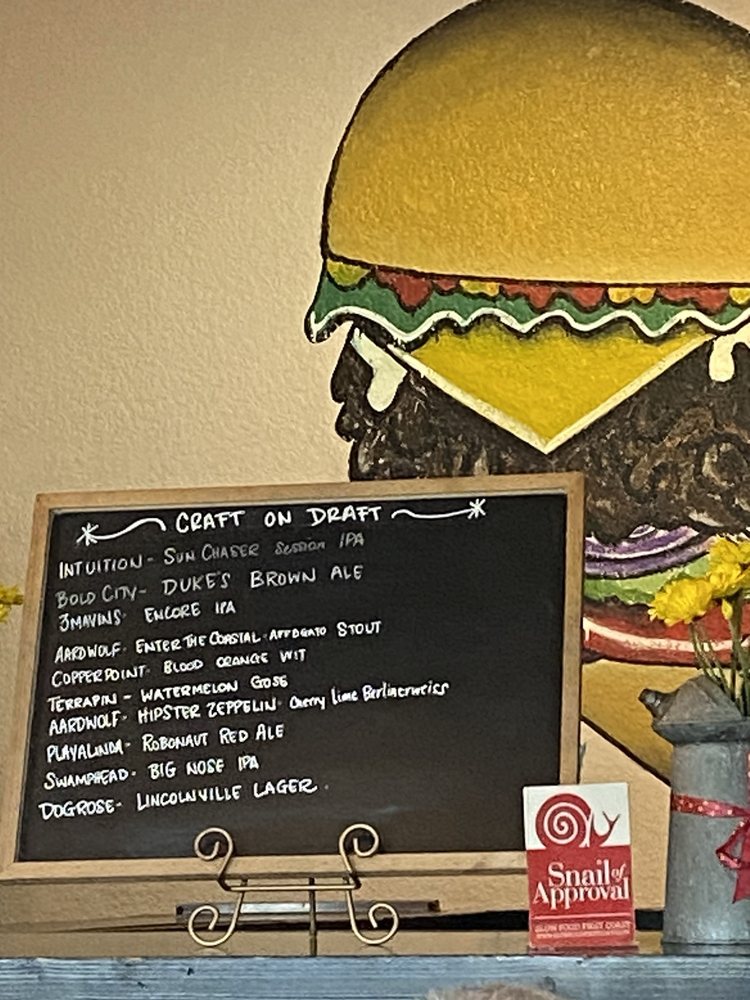 CRAFT ON DRAFT
INTUITION - SUN CHASER Session IPA
BOLD CITY - DUKE'S BROWN ALE
3MAVINS - ENCORE IPA
AARDWOLF - ENTER THE COASTAL - AFFOGATO STOUT
COPPERPOINT - BLOOD ORANGE WIT
TERRAPIN - WATERMELON GOSE
AARDWOLF - HIPSTER ZEPPELIN - Cherry Lime Berlinerweiss
PLAYALINDA - ROBONAUT RED ALE
SWAMPHEAD - BIG NOSE IPA
DOGROSE - LINCOLNVILLE LAGER.
Snail of
Approval
SLOW FOOD FIRST COAST